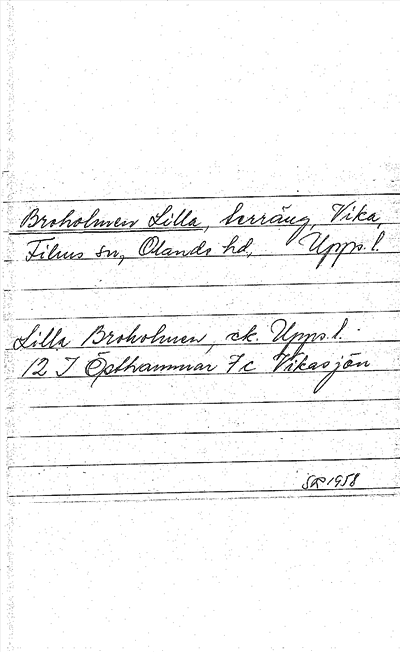 Broholmen Lilla, terräng, Vika,
Films sn, Olands hd, Upps. l.
Lilla Broholmen, ek. Upps. l.
12 I Östhammar 7 c Vikasjön
SR 1958